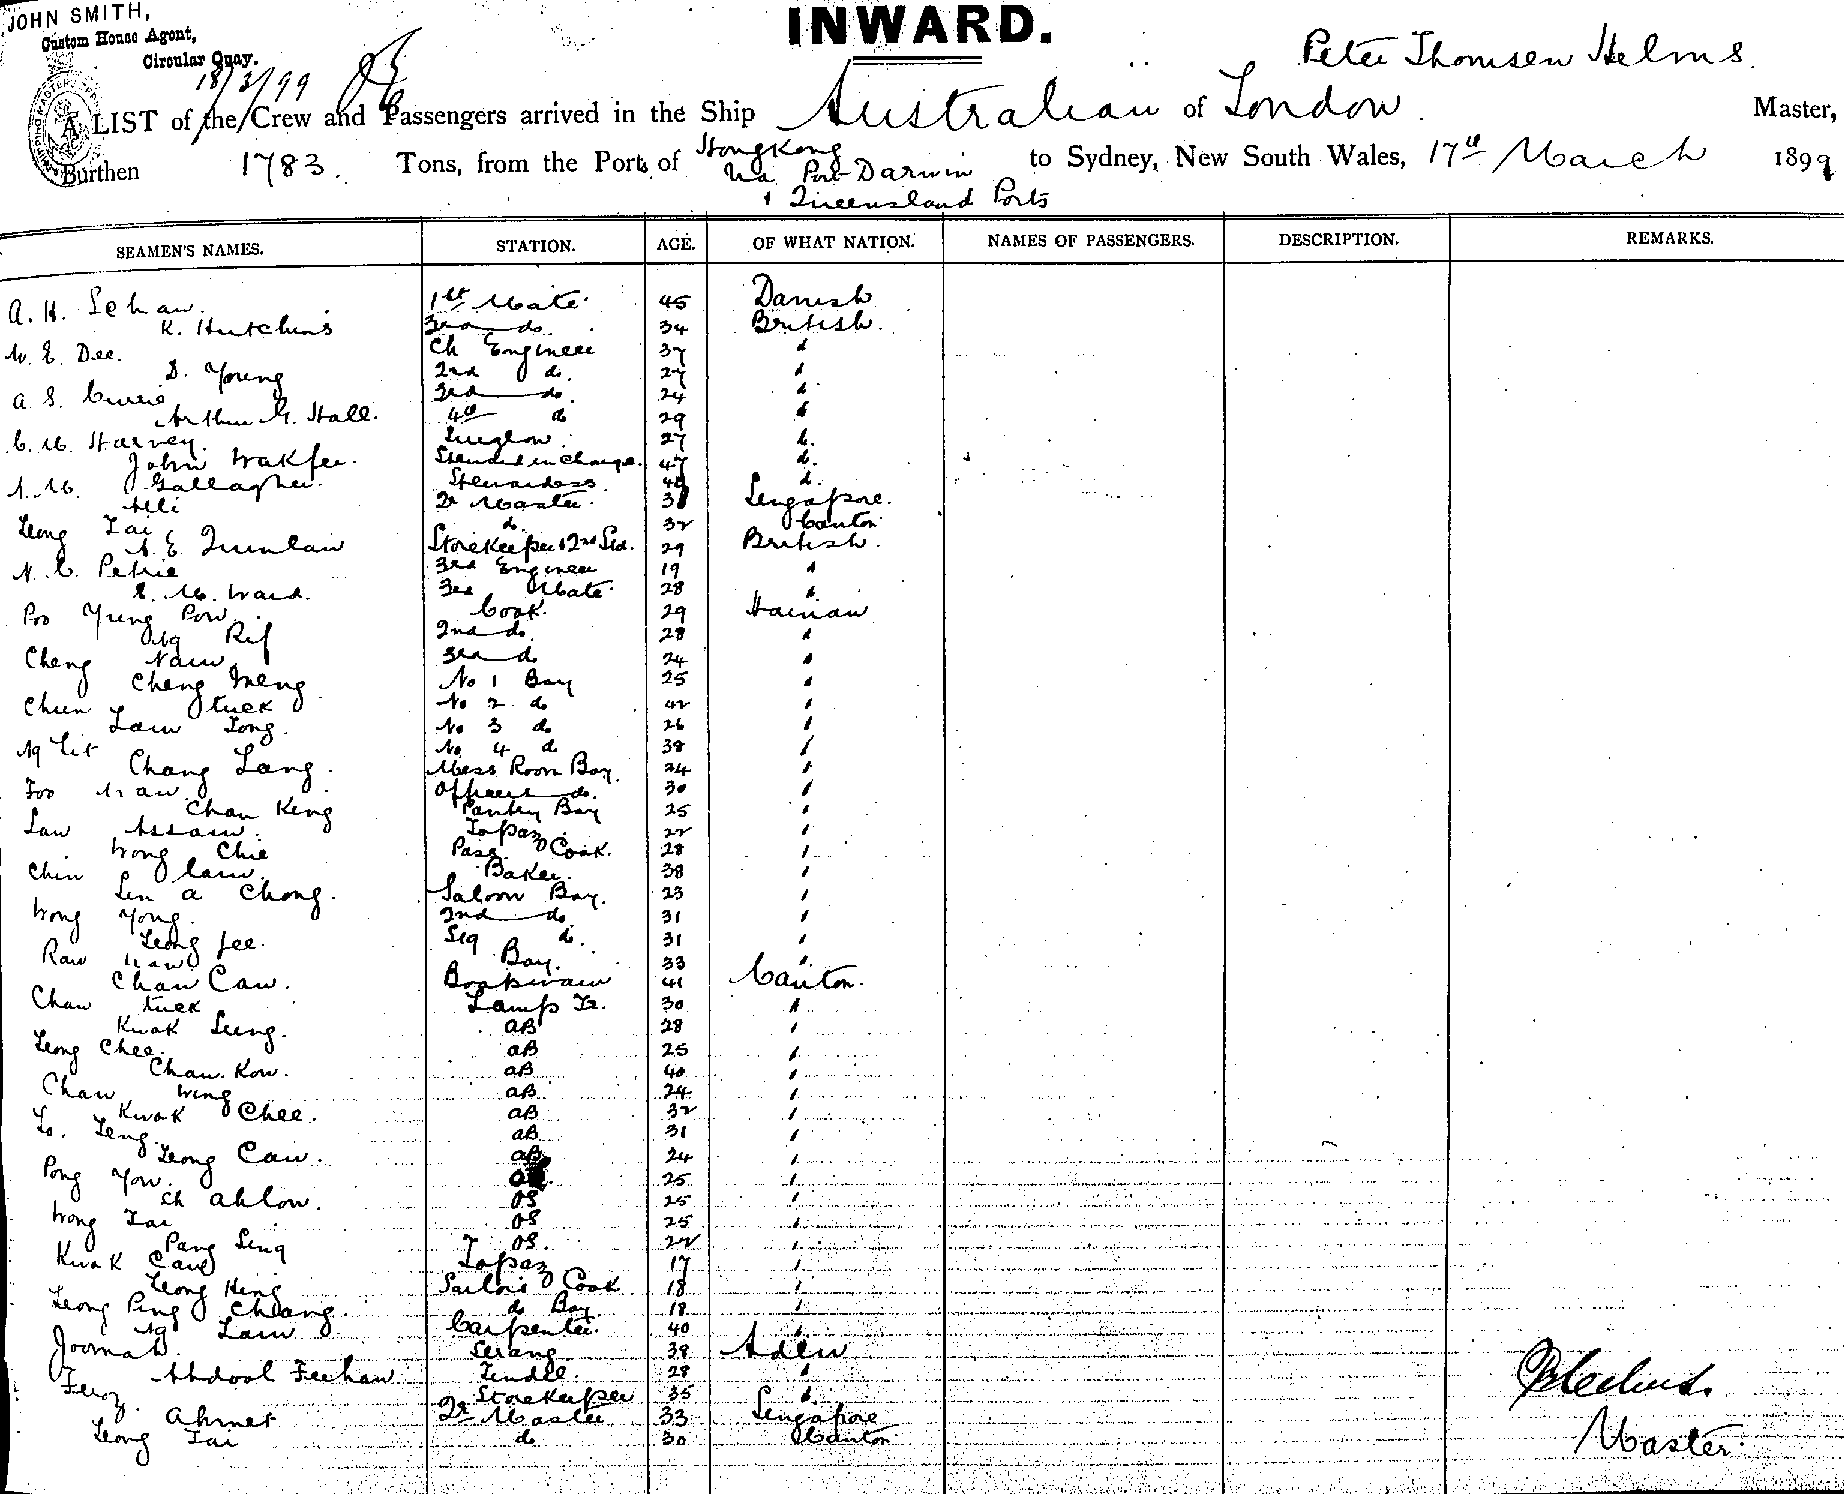 JOHN SMITH,
Custom House Agent,
Circular Quay.
18/3/99
INWARD.
Peter Thomsen Helms.
A LIST of the Crew and Passengers arrived in the Ship Australian of London Master,
Burthen 1783 Tons, from the Port of Hongkong to Sydney, New South Wales, 17th March 1899
Via Port Darwin
& Queensland Ports
SEAMEN'S NAMES. STATION. AGE. OF WHAT NATION. NAMES OF PASSENGERS. DESCRIPTION. REMARKS.
A. H. 1st Mate 45 Danish
K. Hutchins do 34 British
W. E. Dee. Ch Engineer 37 "
D. Young 2nd do. 27 "
A. S. Currie 3rd do 24 "
Arthur G. Hall. 4th do 29 "
C. M. Harvey. Surgeon. 27 d.
John Steward in Charge. 47 d.
Gallagher. Stewardess. d.
Alli Qr Master. Singapore.
Leong Tai d. 32 Canton
A. E. Quinlan Storekeeper & 2nd Std. 29 British.
N. C. Petrie 3rd Engineer 19 "
E. M. Ward. 3rd Mate 28 "
Poo Yung Pow. Cook. 29 Hainan
Ung 2nd do. 28 "
Cheng Nam 3rd do 24 "
Cheng Meng No 1 Boy 25 "
Chun tuck No 2 do 42 "
Lam Tong. No 3 do 26 "
Ng No 4 do 38 "
Chang Lang. Mess Room Boy. 24 "
Foo Officers do. 30 "
Chan Keng Pantry Boy 25 "
Law Assam. Topaz 22 "
Wong Chie Pasg. Cook. 28 "
Chin lam. Baker. 38 "
Len a Chong. Saloon Boy. 23 "
Wong Yong. 2nd do 31 "
Leong Lee. d. 31 "
Boy. 33 "
Chan Caw. Boatswain 41 Canton.
Chaw tuck Lamp Tr. 30 "
Kwok Sung. AB 28 "
Leong Chee. AB 25 "
Chan Kow. AB 40 "
Chan Wing AB 24 "
Kwok Chee. AB 32 "
Lo. Teng. AB 31 "
Leong Caw. AB 24 "
Pong Yow. 25 "
Ch Ahlow. OS 25 "
Wong Tai OS 25 "
Pang Sing OS. 22 "
Kwok Topaz 17 "
Leong Hing Sailors Cook 18 "
Leong Ping Chiang. do Boy 18 "
Ng Lam Carpenter. 40 "
Joomah. Serang 39 Aden
Abdool Tindle. 28 "
Feroz. Storekeeper 35 "
Ahmet Qr Master 33 Singapore
Leong Tai do 30 Canton
Master.